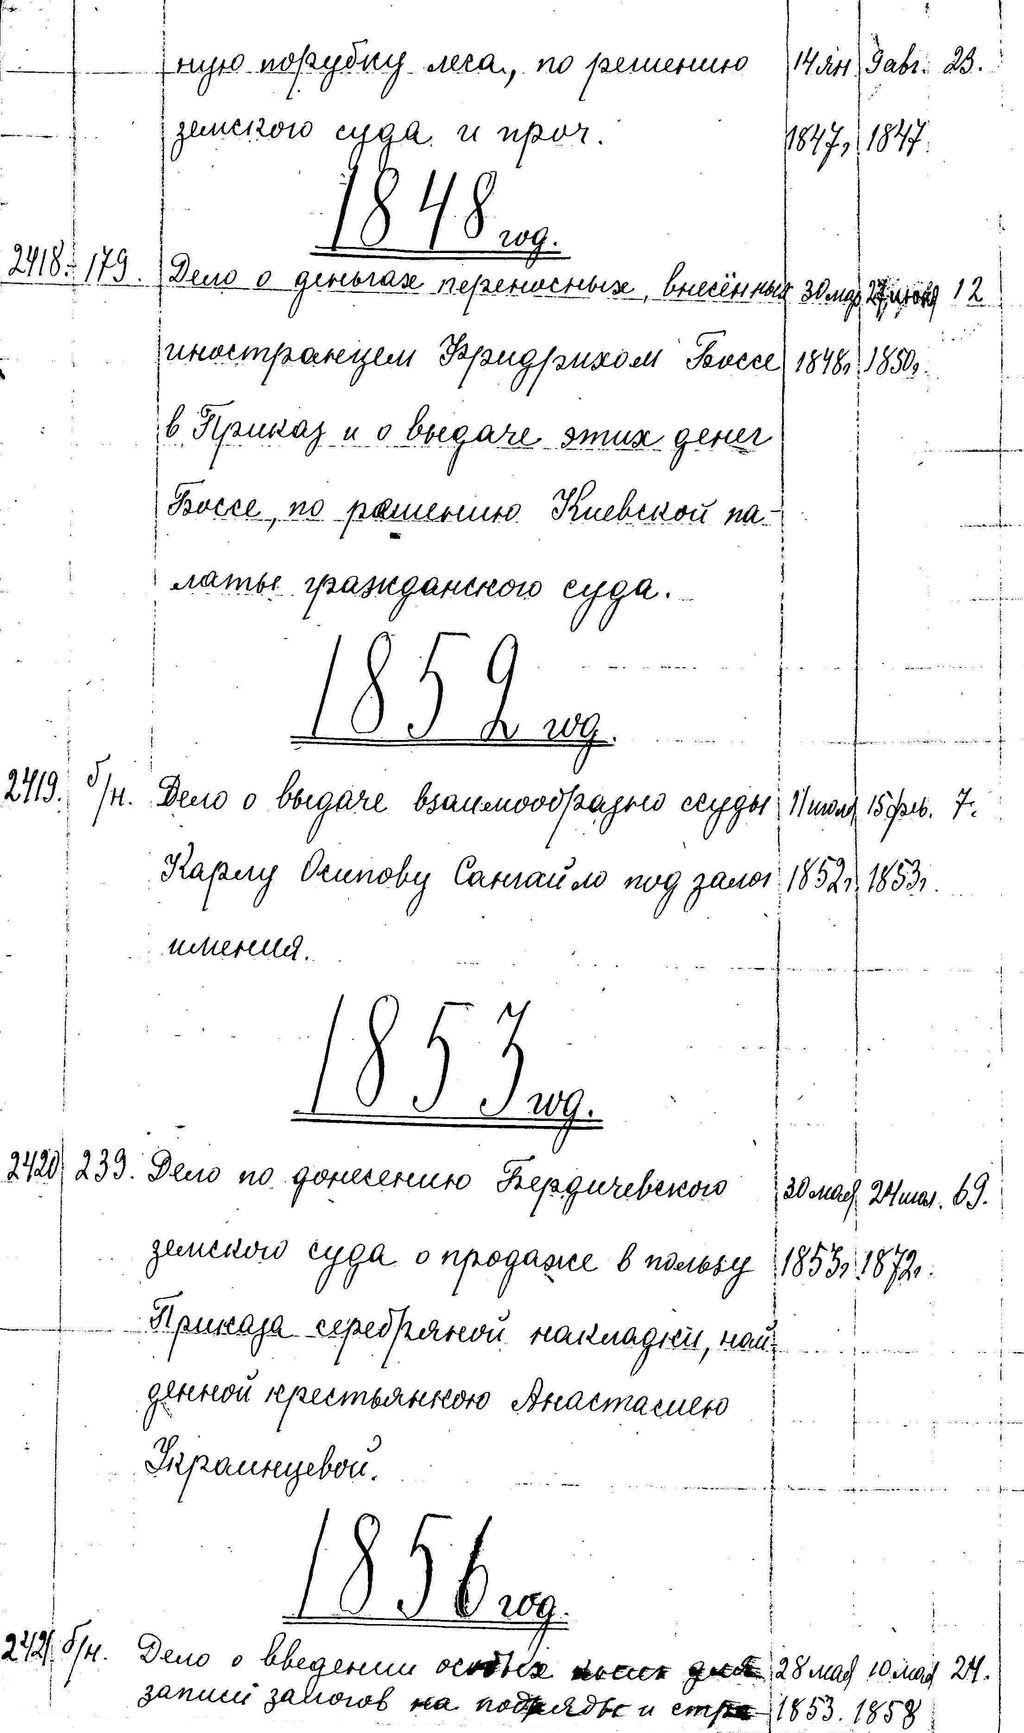 ную порубку леса, по решению 14 ян. 9 авг. 23.
земского суда и проч. 1847г. 1847.
1848 год.
2418. 179. Дело о деньгах переносных, внесённых 30 мар. 12
иностранцем Фридрихом Боссе 1848г. 1850г.
в Приказ и о выдаче этих денег
Боссе, по решению Киевской па-
латы гражданского суда.
1852 год.
2419. б/н. Дело о выдаче взаимообразно ссуды 11 июля 15 фев. 7.
Карлу Осипову Сангайло под залог 1852г. 1853г.
имения.
1853 год.
2420 239. Дело по донесению Бердичевского 30 мая 24 июл. 69.
земского суда о продаже в пользу 1853г. 1872г.
Приказа серебряной накладки, най-
денной крестьянкою Анастасиею
Украинцевой.
1856 год.
2421 б/н. Дело о введении особых книг для 28 мая 10 мая 24.
записи залогов на подряды и 1853. 1858